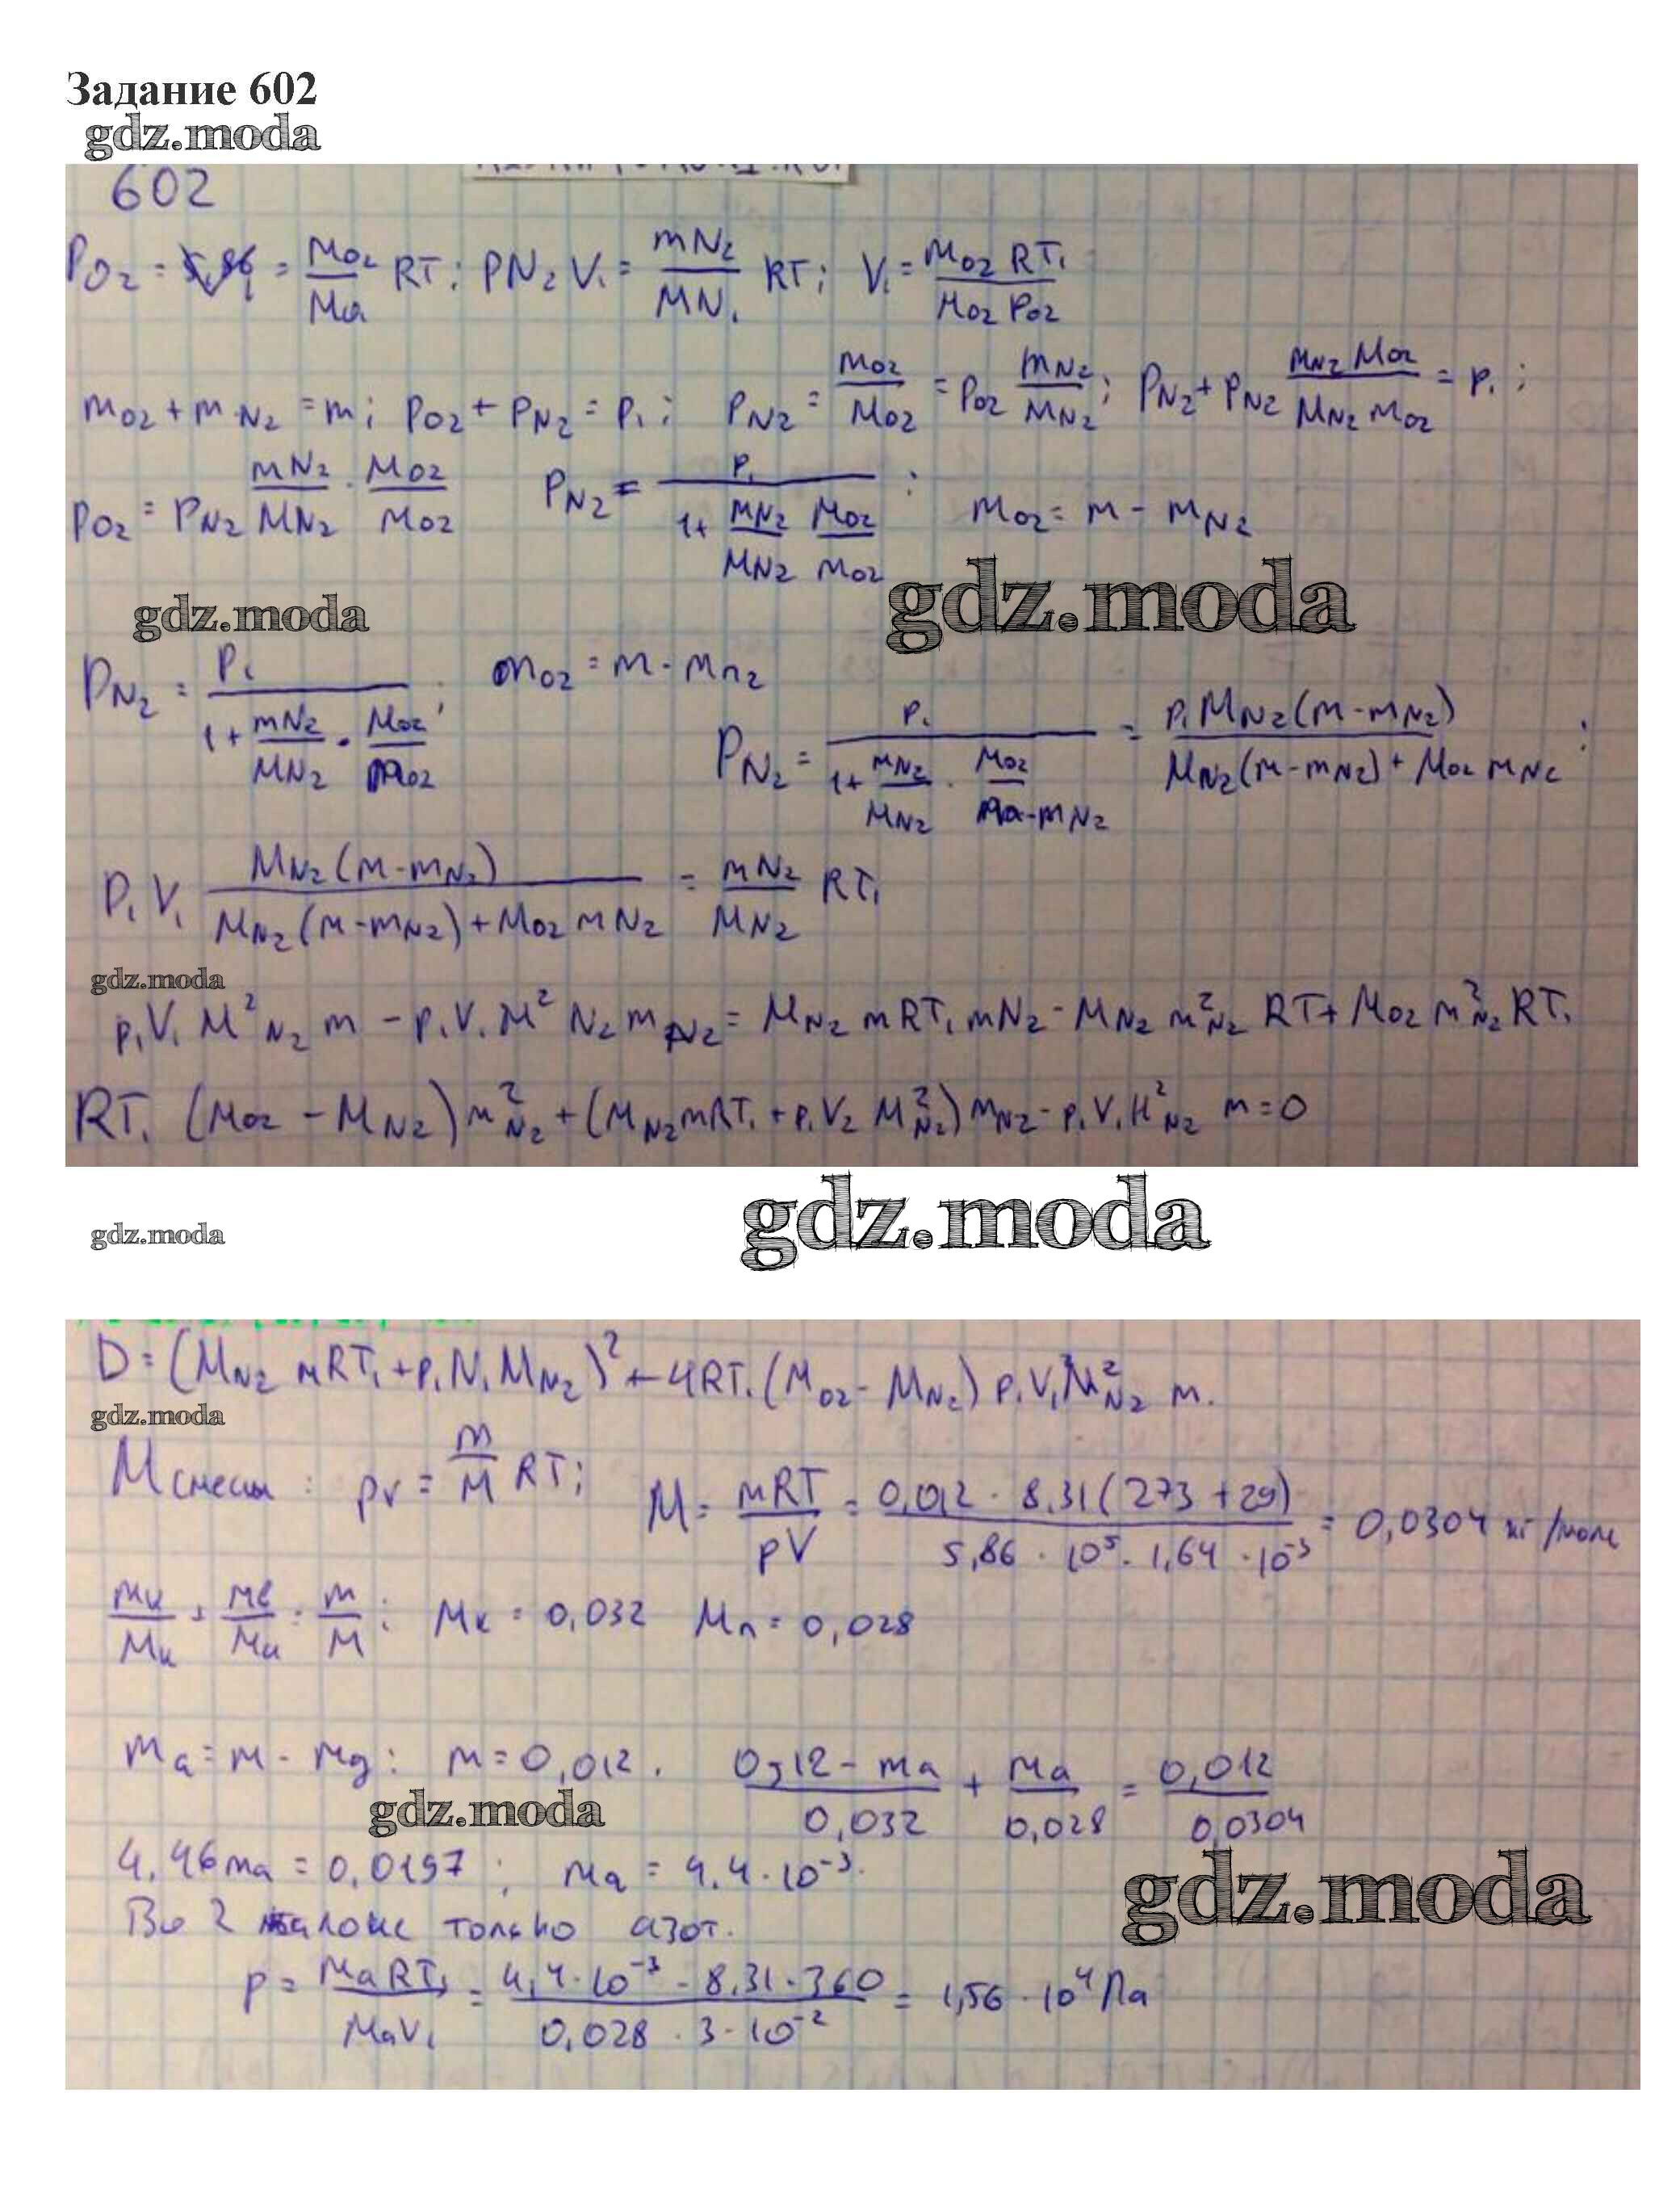 Задание 602
gdz.moda
602
P_{O2} = = \frac{M_{O2}}{Ma} RT; PN_2 V_1 = \frac{mN_2}{MN_1} RT; V_1 = \frac{M_{O2} RT_1}{M_{O2} P_{O2}}
m_{O2} + m_{N2} = m; p_{O2} + p_{N2} = p_1; p_{N2} = \frac{m_{O2}}{M_{O2}} = p_{O2} \frac{m_{N2}}{M_{N2}}; p_{N2} + p_{N2} \frac{m_{N2} M_{O2}}{M_{N2} m_{O2}} = p_1;
p_{O2} = p_{N2} \frac{m_{N2}}{M_{N2}} \cdot \frac{M_{O2}}{m_{O2}} p_{N2} = \frac{p_1}{1 + \frac{m_{N2}}{M_{N2}} \frac{M_{O2}}{m_{O2}}}; m_{O2} = m - m_{N2}
gdz.moda
gdz.moda
p_{N2} = \frac{p_1}{1 + \frac{m_{N2}}{M_{N2}} \cdot \frac{M_{O2}}{m_{O2}}}; m_{O2} = m - m_{n2}
p_{N2} = \frac{p_1}{1 + \frac{m_{N2}}{M_{N2}} \cdot \frac{M_{O2}}{m-m_{N2}}} = \frac{p_1 M_{N2}(m - m_{N2})}{M_{N2}(m - m_{N2}) + M_{O2} m_{N2}};
p_1 V_1 \frac{M_{N2}(m - m_{N2})}{M_{N2}(m - m_{N2}) + M_{O2} m_{N2}} = \frac{m_{N2}}{M_{N2}} RT_1
gdz.moda
p_1 V_1 M^2_{N2} m - p_1 V_1 M^2 N_2 m_{N2} = M_{N2} m RT_1 m_{N2} - M_{N2} m^2_{N2} RT + M_{O2} m^2_{N2} RT_1
RT_1 (M_{O2} - M_{N2}) m^2_{N2} + (M_{N2} m RT_1 + p_1 V_2 M^2_{N2}) m_{N2} - p_1 V_1 M^2_{N2} m = 0
gdz.moda
gdz.moda
D = (M_{N2} m RT_1 + p_1 N_1 M_{N2})^2 + 4RT_1 (M_{O2} - M_{N2}) p_1 V_1 M^2_{N2} m.
gdz.moda
M смеси : pv = \frac{m}{M} RT; M = \frac{mRT}{pV} = \frac{0,012 \cdot 8,31(273 + 29)}{5,86 \cdot 10^5 \cdot 1,64 \cdot 10^{-3}} = 0,0304 кг/моль
\frac{m_к}{M_к} + \frac{mв}{M_к} = \frac{m}{M}; M_к = 0,032 M_п = 0,028
m_a = m - m_g; m = 0,012. \frac{0,12 - m_a}{0,032} + \frac{m_a}{0,028} = \frac{0,012}{0,0304}
gdz.moda
4,46 m_a = 0,0197; m_a = 4,4 \cdot 10^{-3}.
gdz.moda
Во 2 только азот.
p = \frac{m_a RT_1}{M_a V_1} = \frac{4,4 \cdot 10^{-3} \cdot 8,31 \cdot 360}{0,028 \cdot 3 \cdot 10^{-2}} = 1,56 \cdot 10^4 Па